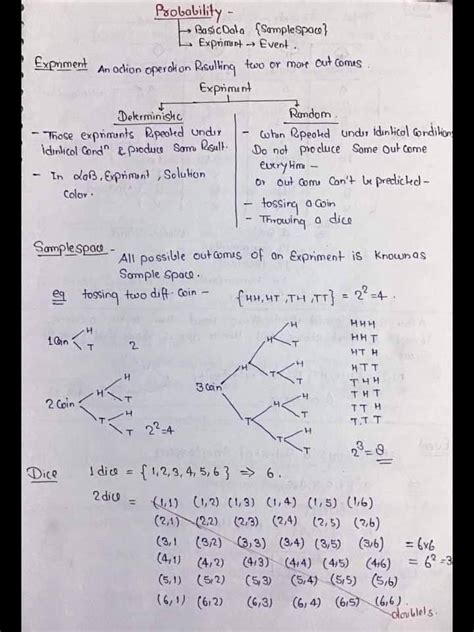 Probability -
→ Basic Data {Sample Space}
→ Expriment → Event.
Expriment An action operation Resulting two or more out comes.
Expriment
Deterministic
- Those expriments Repeated under
Idintical Condⁿ & produce Same Result.
- In Expriment, Solution
Color.
Random.
- When Repeated under Idintical Condition
Do not produce Same out come
everytime -
or out come Can't be predicted -
- tossing a Coin
- Throwing a dice
Sample space - All possible outcomes of an Expriment is known as
Sample Space.
eg tossing two diff. Coin - {HH, HT, TH, TT} = 2² = 4.
1 Coin H T 2
2 Coin H T H T H T 2² = 4
3 Coin H T H T H T H T H T H T H T
HHH
HHT
HTH
HTT
THH
THT
TTH
TTT
2³ = 8
Dice 1 dice = {1, 2, 3, 4, 5, 6} ⇒ 6.
2 dice = (1,1) (1,2) (1,3) (1,4) (1,5) (1,6)
(2,1) (2,2) (2,3) (2,4) (2,5) (2,6)
(3,1 (3,2) (3,3) (3,4) (3,5) (3,6) = 6x6
(4,1) (4,2) (4,3) (4,4) (4,5) (4,6) = 6² = 3
(5,1) (5,2) (5,3) (5,4) (5,5) (5,6)
(6,1) (6,2) (6,3) (6,4) (6,5) (6,6)
doublets.